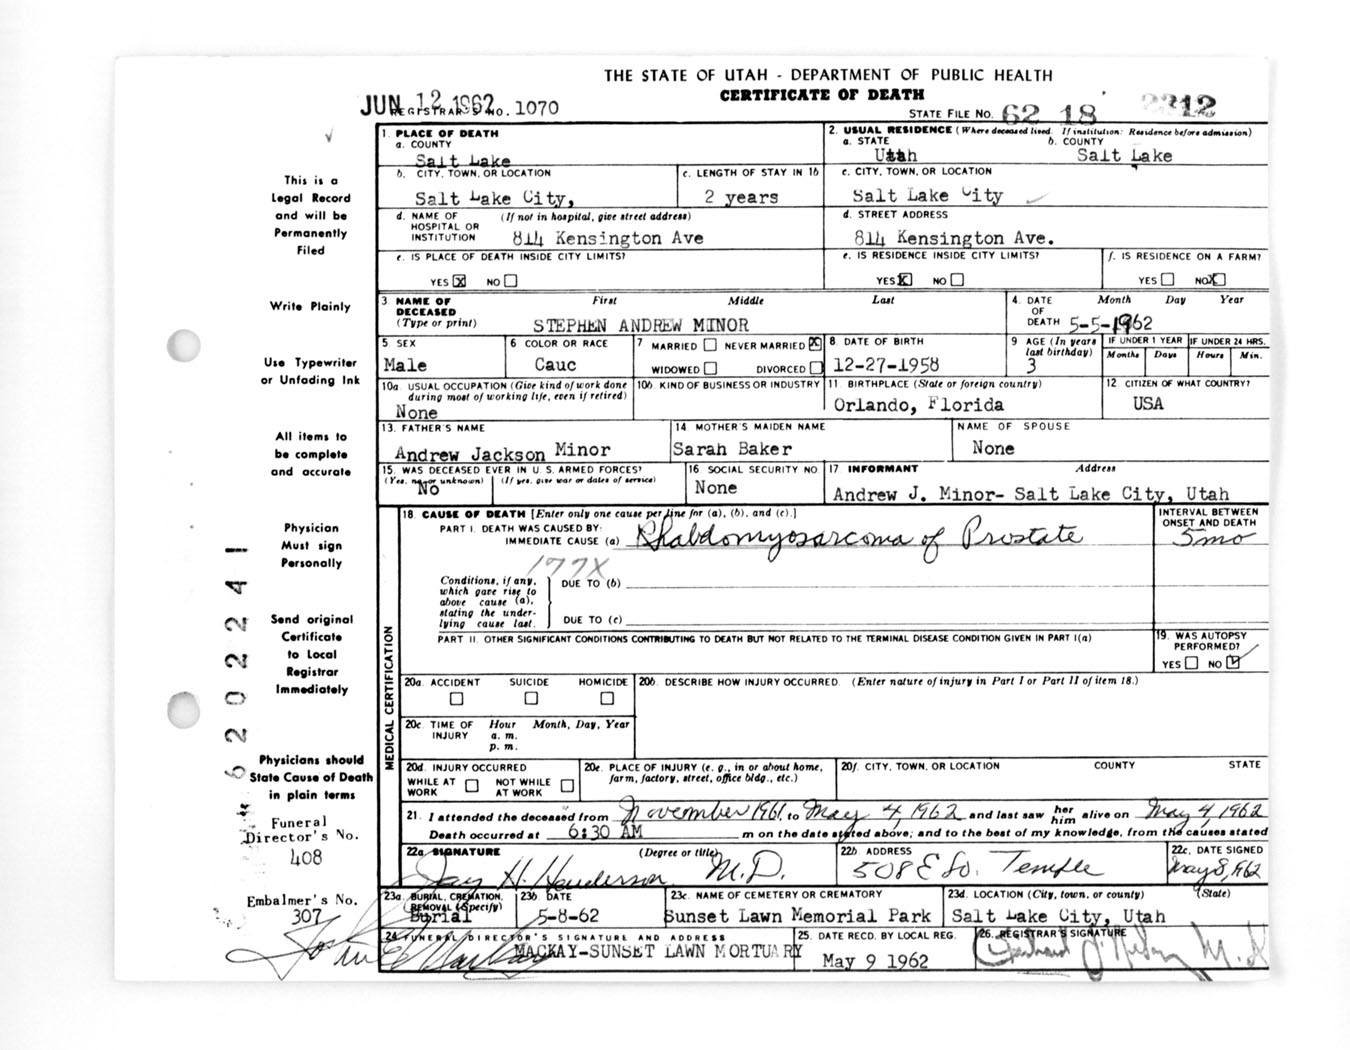 THE STATE OF UTAH - DEPARTMENT OF PUBLIC HEALTH
CERTIFICATE OF DEATH
JUN 12 1962
REGISTRAR'S NO. 1070
STATE FILE NO. 62 18 2312
This is a
Legal Record
and will be
Permanently
Filed
Write Plainly
Use Typewriter
or Unfading Ink
All items to
be complete
and accurate
Physician
Must sign
Personally
Send original
Certificate
to Local
Registrar
Immediately
Physicians should
State Cause of Death
in plain terms
Funeral
Director's No.
408
Embalmer's No.
307
62022241
1. PLACE OF DEATH
a. COUNTY
Salt Lake
2. USUAL RESIDENCE (Where deceased lived. If institution: Residence before admission)
a. STATE b. COUNTY
Utah Salt Lake
b. CITY, TOWN, OR LOCATION
Salt Lake City,
c. LENGTH OF STAY IN 1b
2 years
c. CITY, TOWN, OR LOCATION
Salt Lake City
d. NAME OF (If not in hospital, give street address)
HOSPITAL OR
INSTITUTION 814 Kensington Ave
d. STREET ADDRESS
814 Kensington Ave.
e. IS PLACE OF DEATH INSIDE CITY LIMITS?
YES X NO
e. IS RESIDENCE INSIDE CITY LIMITS?
YES X NO
f. IS RESIDENCE ON A FARM?
YES NO X
3. NAME OF First Middle Last
DECEASED
(Type or print) STEPHEN ANDREW MINOR
4. DATE Month Day Year
OF
DEATH 5-5-1962
5 SEX
Male
6 COLOR OR RACE
Cauc
7 MARRIED NEVER MARRIED X
WIDOWED DIVORCED
8. DATE OF BIRTH
12-27-1958
9 AGE (In years
last birthday)
3
IF UNDER 1 YEAR IF UNDER 24 HRS.
Months Days Hours Min.
10a. USUAL OCCUPATION (Give kind of work done
during most of working life, even if retired)
None
10b. KIND OF BUSINESS OR INDUSTRY
11 BIRTHPLACE (State or foreign country)
Orlando, Florida
12. CITIZEN OF WHAT COUNTRY?
USA
13. FATHER'S NAME
Andrew Jackson Minor
14 MOTHER'S MAIDEN NAME
Sarah Baker
NAME OF SPOUSE
None
15. WAS DECEASED EVER IN U. S. ARMED FORCES?
(Yes, no or unknown) (If yes, give war or dates of service)
No
16 SOCIAL SECURITY NO
None
17 INFORMANT Address
Andrew J. Minor- Salt Lake City, Utah
MEDICAL CERTIFICATION
18. CAUSE OF DEATH [Enter only one cause per line for (a), (b), and (c).]
INTERVAL BETWEEN
ONSET AND DEATH
PART I. DEATH WAS CAUSED BY:
IMMEDIATE CAUSE (a) Rhabdomyosarcoma of Prostate 5 mo
177X
Conditions, if any,
which gave rise to
above cause (a),
stating the under-
lying cause last.
DUE TO (b)
DUE TO (c)
PART II. OTHER SIGNIFICANT CONDITIONS CONTRIBUTING TO DEATH BUT NOT RELATED TO THE TERMINAL DISEASE CONDITION GIVEN IN PART I(a)
19. WAS AUTOPSY
PERFORMED?
YES NO ✓
20a. ACCIDENT SUICIDE HOMICIDE
20b. DESCRIBE HOW INJURY OCCURRED. (Enter nature of injury in Part I or Part II of item 18.)
20c. TIME OF Hour Month, Day, Year
INJURY a. m.
p. m.
20d. INJURY OCCURRED
WHILE AT NOT WHILE
WORK AT WORK
20e. PLACE OF INJURY (e. g., in or about home,
farm, factory, street, office bldg., etc.)
20f. CITY, TOWN, OR LOCATION COUNTY STATE
21. I attended the deceased from November 1961 to May 4, 1962 and last saw her him alive on May 4, 1962
Death occurred at 6:30 AM m on the date stated above; and to the best of my knowledge, from the causes stated
22a. SIGNATURE (Degree or title)
Jay H. Henderson M.D.
22b ADDRESS
508 E So. Temple
22c. DATE SIGNED
May 8, 1962
23a. BURIAL, CREMATION,
REMOVAL (Specify)
Burial
23b DATE
5-8-62
23c. NAME OF CEMETERY OR CREMATORY
Sunset Lawn Memorial Park
23d. LOCATION (City, town, or county) (State)
Salt Lake City, Utah
24 FUNERAL DIRECTOR'S SIGNATURE AND ADDRESS
MACKAY-SUNSET LAWN MORTUARY
25. DATE RECD. BY LOCAL REG.
May 9 1962
26. REGISTRAR'S SIGNATURE